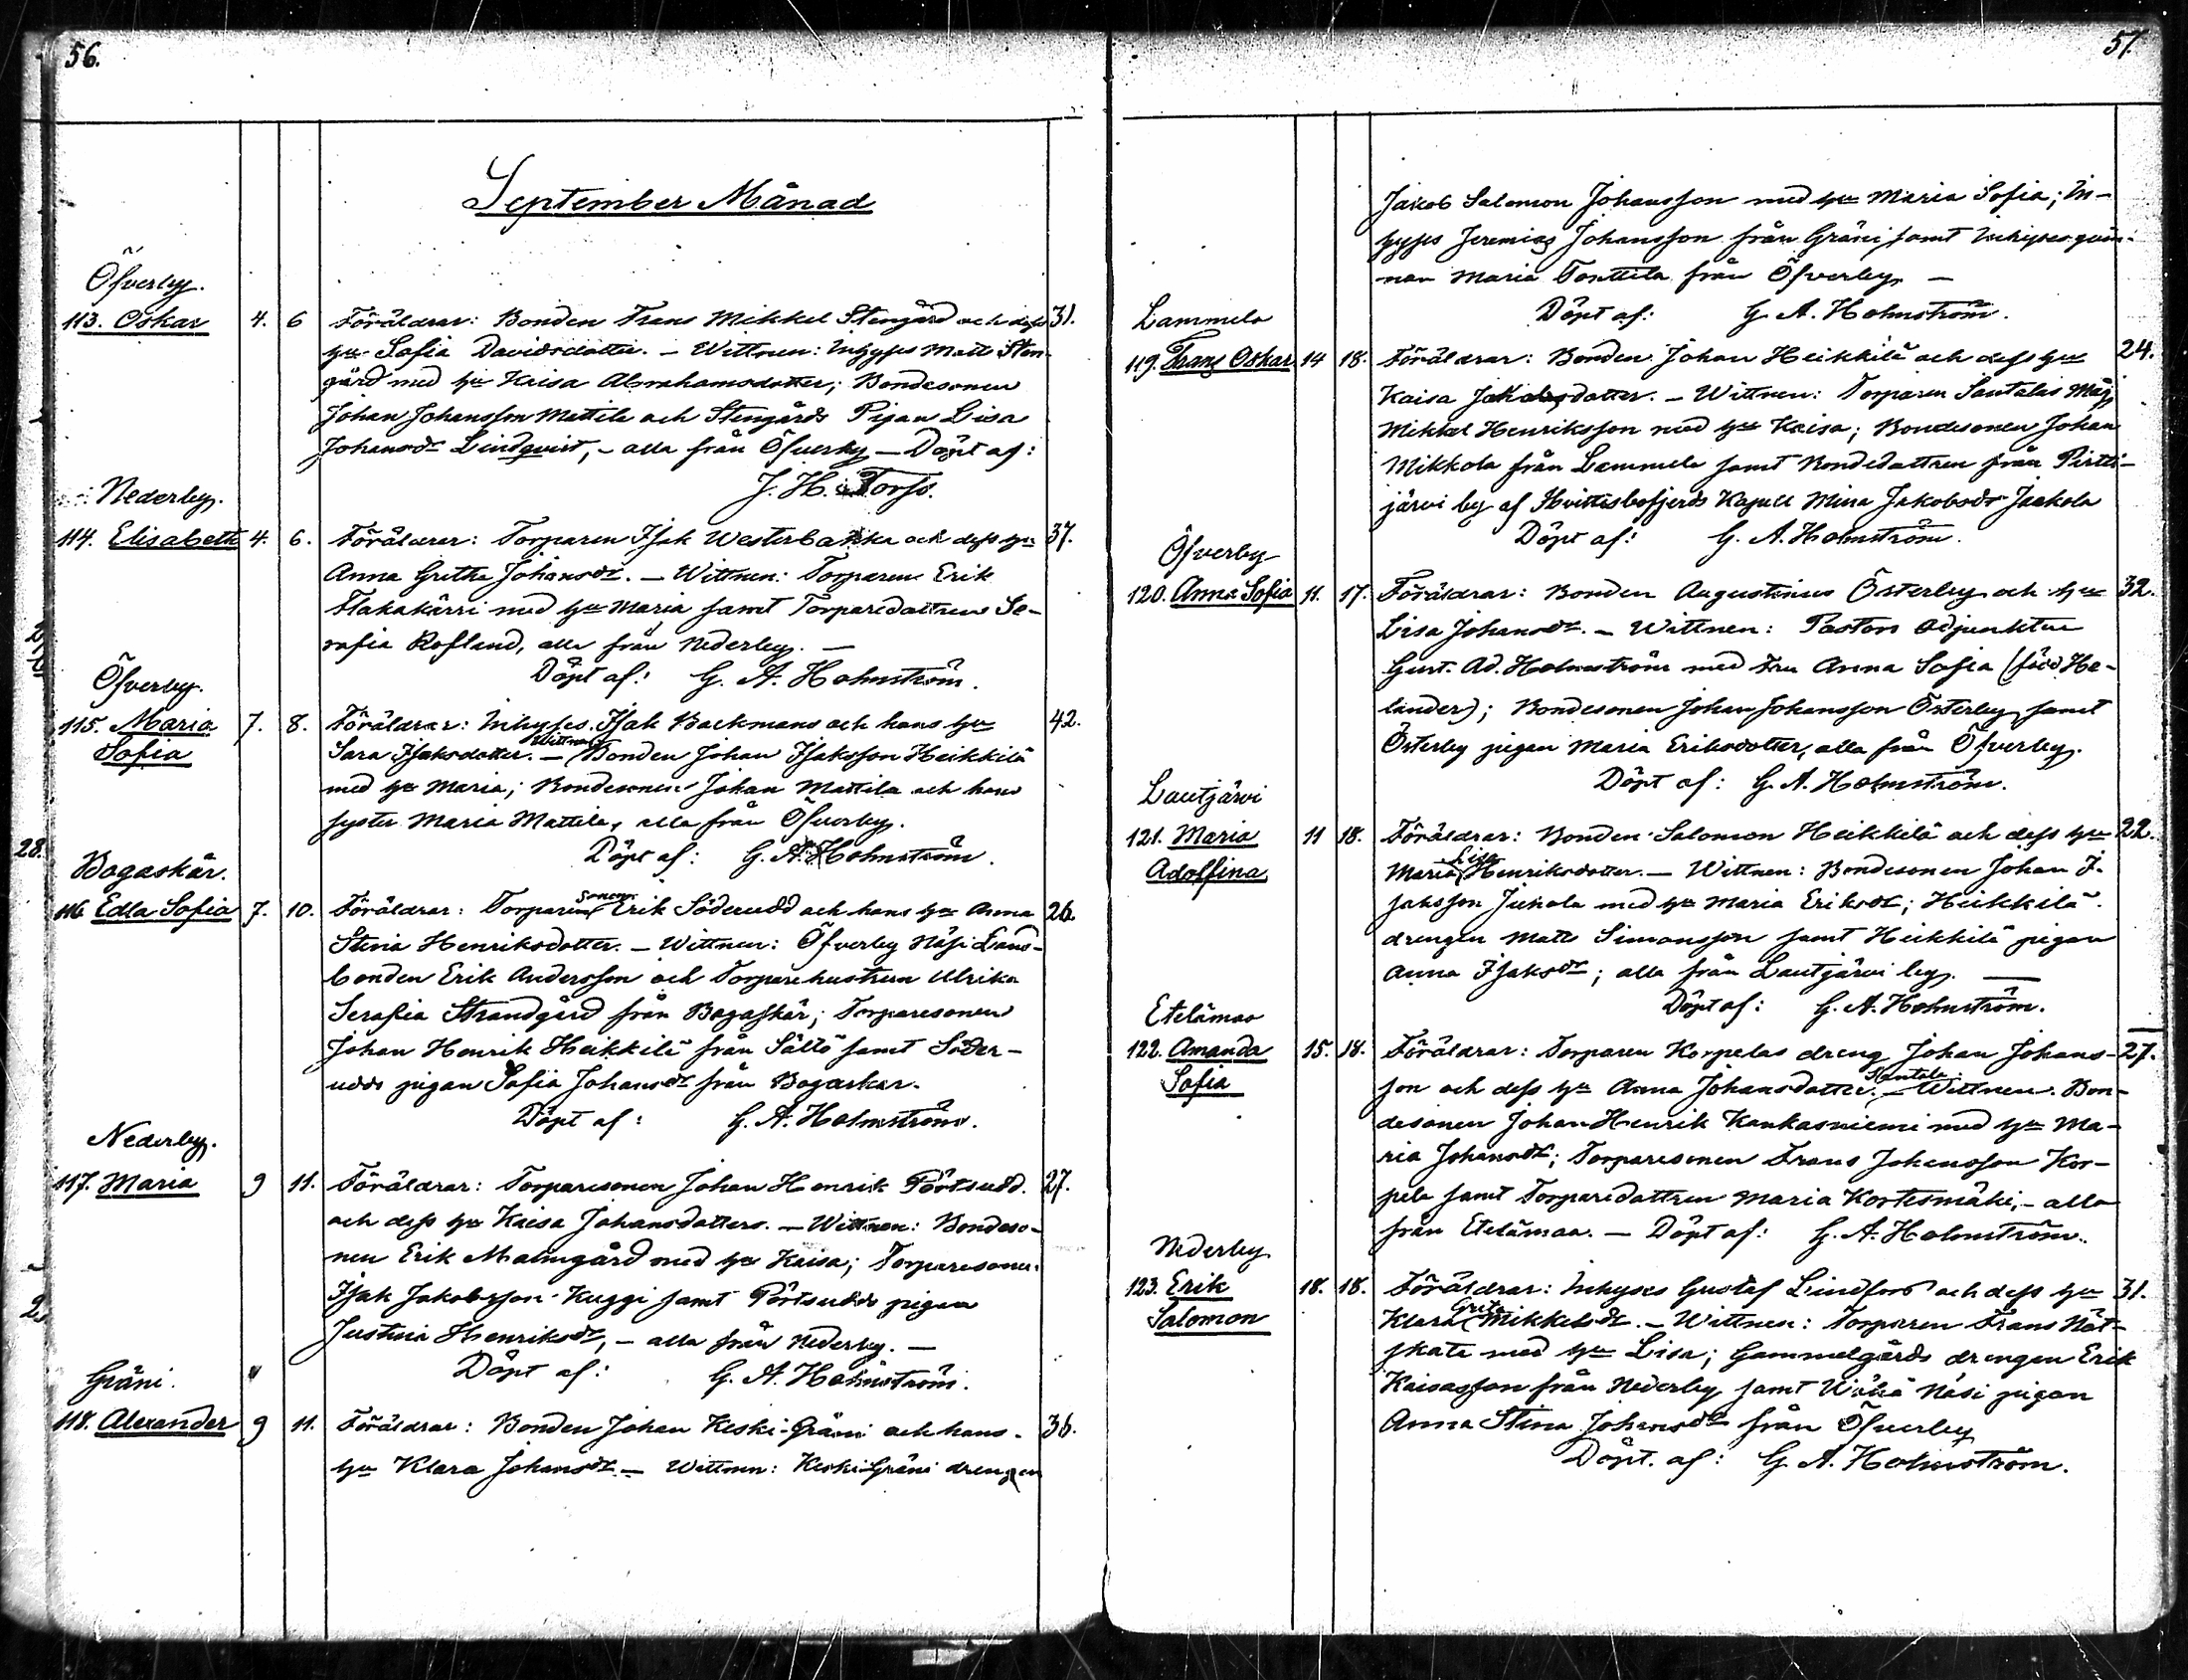 56.
September Månad
Öfverby.
113. Oskar 4. 6 Föräldrar: Bonden Frans Mikkel Stengård och dess 31.
hu Sofia Davidsdotter. – Wittnen: Inhyses Matts Sten-
gård med hu Kaisa Abrahamsdotter; Bondesonen
Johan Johansson Mattila och Stengårds Pigan Lisa
Johansdr Lindqvist, – alla från Öfverby – Döpt af:
J. H. Torfs.
Nederby.
114. Elisabeth 4. 6. Föräldrar: Torparen Isak Westerbakka och dess hu 37.
Anna Gretha Johansdr. – Wittnen: Torparen Erik
Flakakärri med hu Maria, samt Torparedottren Se-
rafia Rosland, alla från Nederby. –
Döpt af: G. A. Holmström.
Öfverby.
115. Maria 7. 8. Föräldrar: Inhyses Isak Backmans och hans hu 42.
Sofia Sara Isaksdotter. – Wittnen: Bonden Johan Isaksson Heikkilä
med hu Maria; Bondesonen Johan Mattila och hans
syster Maria Mattila, alla från Öfverby.
Döpt af: G. A. Holmström.
28.
Bogaskär.
116 Edla Sofia 7. 10. Föräldrar: Torparen sonen Erik Söderudd och hans hu Anna 26.
Stina Henriksdotter. – Wittnen: Öfverby Näsi Lands-
bonden Erik Andersson och Torparehustrun Ulrika
Serafia Strandgård från Bogaskär; Torparesonen
Johan Henrik Heikkilä från Sältö samt Söder-
udds pigan Sofia Johansdr från Bogaskär.
Döpt af: G. A. Holmström.
Nederby.
117. Maria 9 11. Föräldrar: Torparesonen Johan Henrik Pörtsudd. 27.
och dess hu Kaisa Johansdotter. – Wittnen: Bondeso-
nen Erik Malmgård med hu Kaisa; Torparesonen
Isak Jakobsson Kuggi samt Pörtsudds pigan
Justina Henriksdr, – alla från Nederby. –
Döpt af: G. A. Holmström.
Gräni. "
118. Alexander 9 11. Föräldrar: Bonden Johan Keski-Gräni och hans 36.
hu Klara Johansdr. – Wittnen: Keski Gräni drengen
57.
Jakob Salomon Johansson med hu Maria Sofia; In-
hyses Jeremias Johansson från Gräni samt Inhyses qvin-
nan Maria Tonttila från Öfverby. –
Döpt af: G. A. Holmström.
Lammela
119. Frans Oskar 14 18. Föräldrar: Bonden Johan Heikkilä och dess hu 24.
Kaisa Jakobsdotter. – Wittnen: Torparen Santalas Måg
Mikkel Henriksson med hu Kaisa; Bondesonen Johan
Mikkola från Lammela samt Bondedottren från Pirtti-
järvi by af Hvittisbofjerds Kapell Mina Jakobsdr Jaakola
Döpt af: G. A. Holmström.
Öfverby
120. Anna Sofia 11. 17. Föräldrar: Bonden Augustinus Österby och hu 32.
Lisa Johansdr. – Wittnen: Pastors Adjunkten
Gust. Ad. Holmström med Fru Anna Sofia (född He-
lander); Bondesonen Johan Johansson Österby samt
Österby pigan Maria Eriksdotter, alla från Öfverby.
Döpt af: G. A. Holmström.
Lautjärvi
121. Maria 11 18. Föräldrar: Bonden Salomon Heikkilä och dess hu 22.
Adolfina Maria Lisa Henriksdotter. – Wittnen: Bondesonen Johan I-
saksson Juhola med hu Maria Eriksdr; Heikkilä
drengen Matts Simonsson samt Heikkilä pigan
Anna Isaksdr; alla från Lautjärvi by. —
Döpt af: G. A. Holmström.
Etelämaa
122. Amanda 15. 18. Föräldrar: Torparen Korpelas dreng Johan Johans- 27.
Sofia son och dess hu Anna Johansdotter. Santala – Wittnen. Bon-
desonen Johan Henrik Kankasniemi med hu Ma-
ria Johansdr; Torparesonen Frans Johansson Kor-
pela samt Torparedottren Maria Kortesmäki, – alla
från Etelämaa. – Döpt af: G. A. Holmström.
Nederby
123. Erik 18. 18. Föräldrar: Inhyses Gustaf Lindfors och dess hu 31.
Salomon Klara Greta Mikkelsdr. – Wittnen: Torparen Frans Nöt-
skata med hu Lisa; Gammelgårds drengen Erik
Kaisasson från Nederby samt Wähä Näsi pigan
Anna Stina Johansdr från Öfverby
Döpt. af: G. A. Holmström.